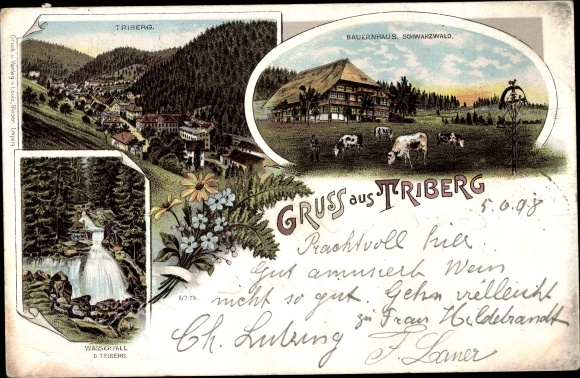 TRIBERG.
BAUERNHAUS. SCHWARZWALD.
GRUSS aus TRIBERG
Prachtvoll hier
Gut amusiert Wein
nicht so gut. Gehn vielleicht
zu Frau Hildebrandt
Ch. Lutzing
WASSERFALL
B. TRIBERG.